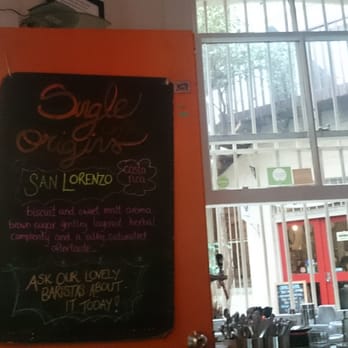 Single
Origins
SAN LORENZO
costa
rica
biscuit and sweet malt aroma
brown sugar layered herbal
complexity and a silky
aftertaste
ASK OUR LOVELY
BARISTAS ABOUT
IT TODAY!